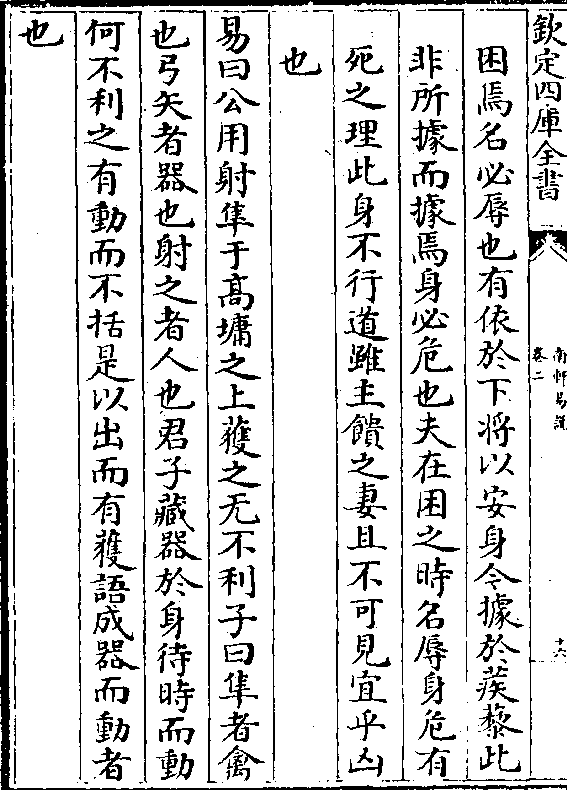 欽定四庫全書
南軒易說
卷二
十六
困焉名必辱也有依於下將以安身今據於蒺藜此
非所據而據焉身必危也夫在困之時名辱身危有
死之理此身不行道雖主饋之妻且不可見宜乎凶
也
易曰公用射隼于髙墉之上䕶之无不利子曰隼者禽
也弓矢者器也射之者人也君子藏器於身待時而動
何不利之有動而不括是以出而有䕶語成器而動者
也